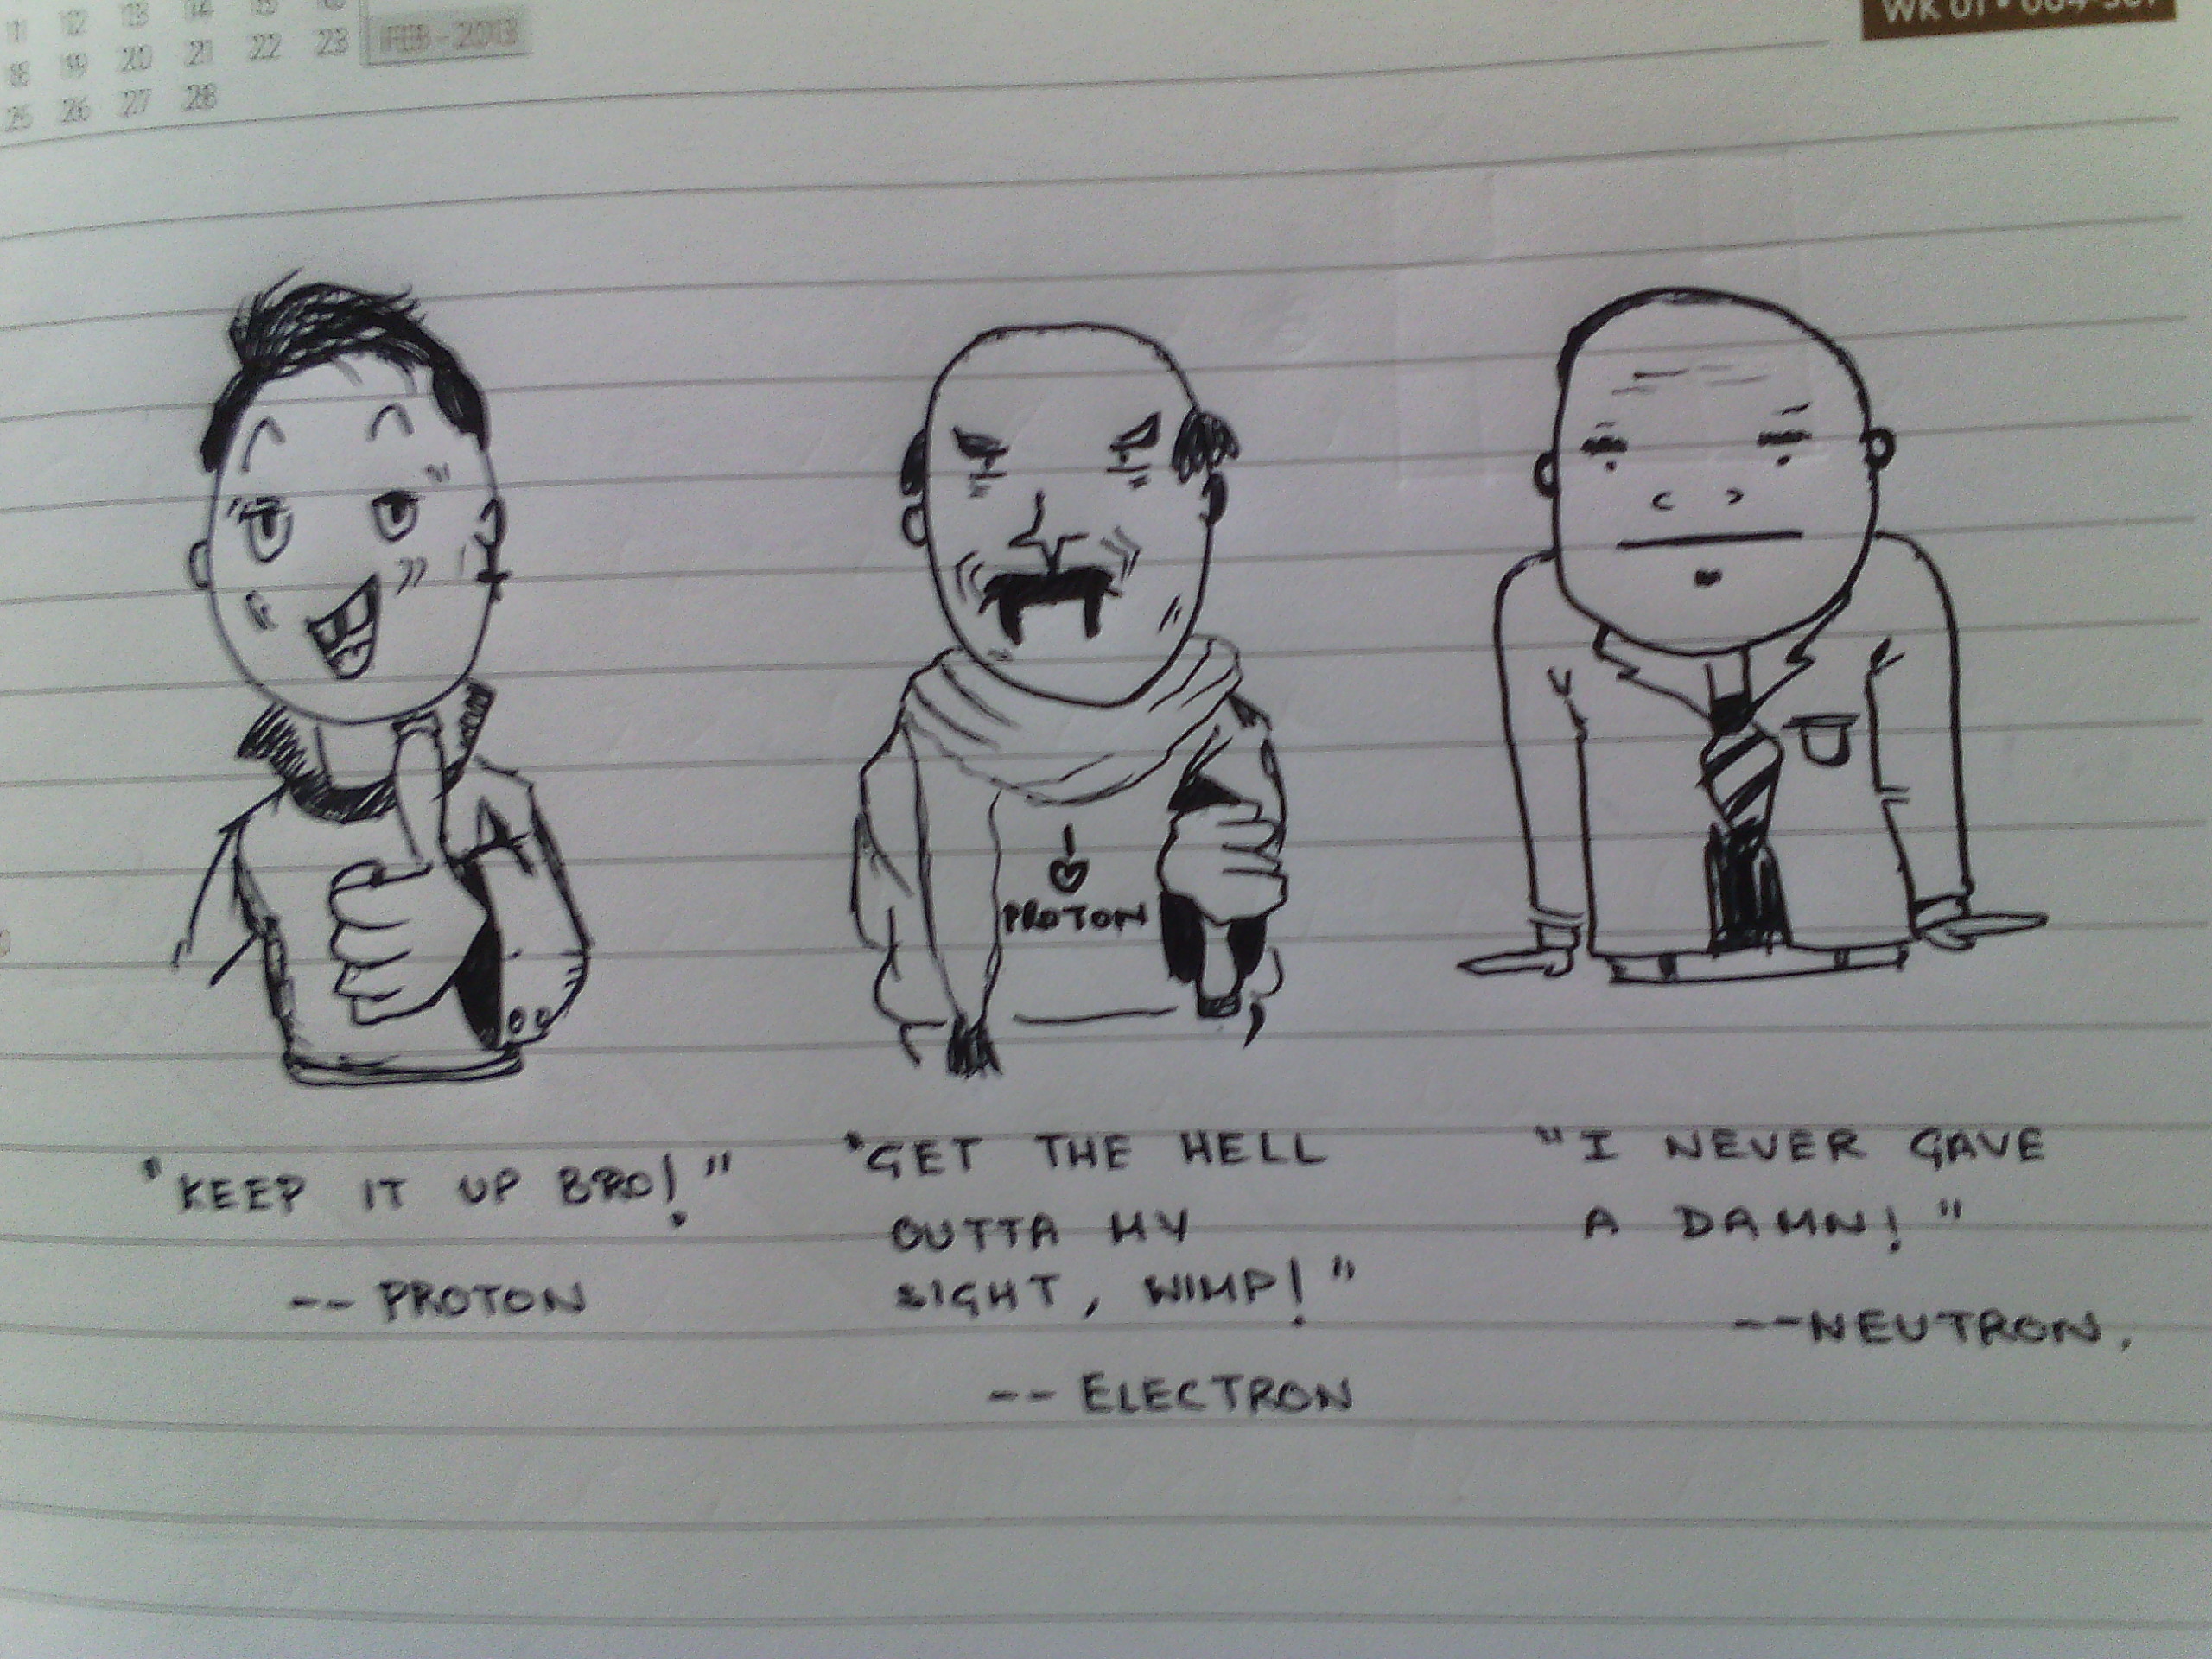 11 12 13 14 15 16
18 19 20 21 22 23
25 26 27 28
FEB - 2013
WK 01 •
I
PROTON
"KEEP IT UP BRO!"
-- PROTON
"GET THE HELL
OUTTA MY
SIGHT, WIMP!"
-- ELECTRON
"I NEVER GAVE
A DAMN!"
--NEUTRON.